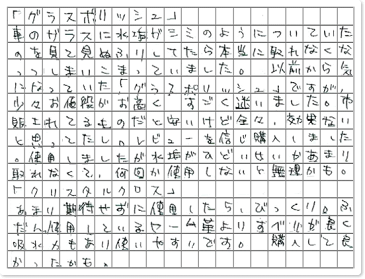 「グラスポリッシュ」
車のガラスに水垢がシミのようについていた
のを見て見ぬふりしてたら本当に取れなくな
ってしまいこまっていました。 以前から気
になっていた「グラスポリッシュ」ですが、
少々お値段がお高く、すごく迷いました。市
販されてるものだと安いけど全々、効果ない
と思ってたし。レビューを信じ購入しました
。使用しましたが水垢がひどいせいかあまり
取れなくて、何回か使用しないと無理かも。
「クリスタルクロス」
あまり期待せずに使用したら、びっくり。ふ
だん使用しているセーム革よりすべりが良く
吸水力もあり使いやすいです。 購入して良
かったかも。